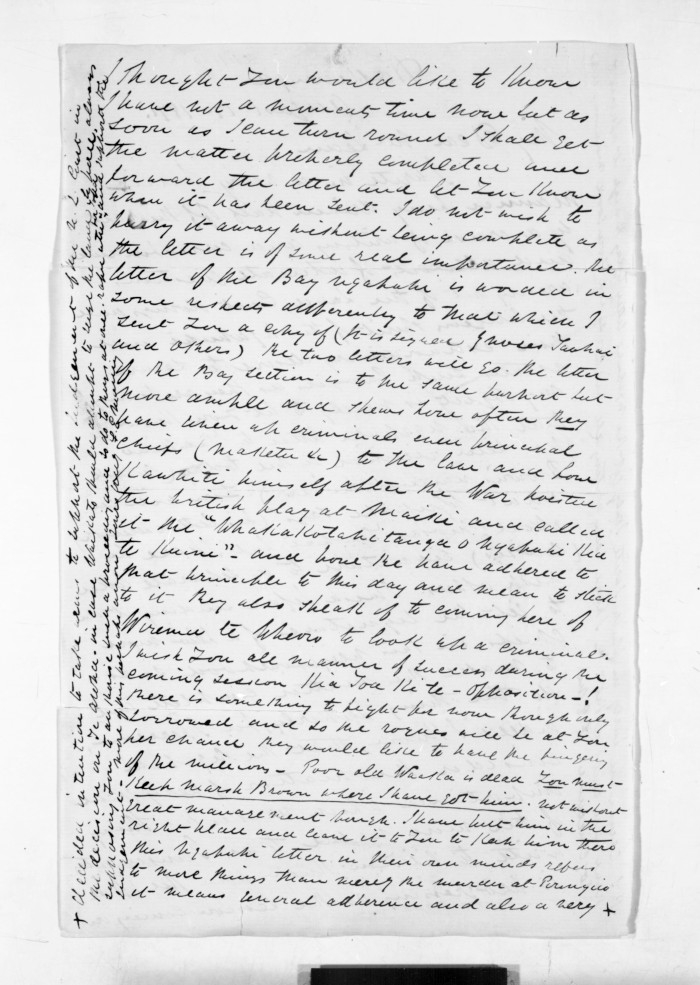 I thought You would like to Know
I have not a moments time now but as
soon as I can turn round I shall get
the matter properly completed and
forward the letter and let You Know
when it has been sent. I do not wish to
hurry it away without being complete as
the letter is of some real importance. The
letter of the Bay Ngapuhi is worded in
some respects differently to that which I
sent You a copy of (It is signed by Moses Tawhai
and others) The two letters will go. The letter
of the Bay section is to the same purport but
more ample and shews how often they
have given up criminals even principal
chiefs (Maketu &c) to the law and how
Kawhiti himself after the War hoisted
the british flag at Maiki and called
it the "Whakakotahitanga o Ngapuhi Kia
te Kuini" - and how the have adhered to
that principle to this day and mean to stick
to it they also speak of to coming here of
Wiremu te Wheoro to look up a criminal.
I wish You all manner of success during the
coming session Kia Toa Ki te - opposition - !
there is something to fight for now though only
borrowed and so the rogues will be at You
for chance they would like to have the fingering
of the millions - Poor old Waaka is dead You must
Keep Marsh Brown where I have got him. not without
great management though. I have put him in the
right place and leave it to You to Keep him there
This Ngapuhi letter in their own minds refers
to more things than merely the murder at
it means general adherence and also a very +
+ decided intention to take arms to support the judgement of the N. Z. Court in
the decision on Te Aroha - in case Waikato should attempt to seize the land by force always
supposing You to authorise such a proceeding and to do things at a and support the
judgement - more of this perhaps